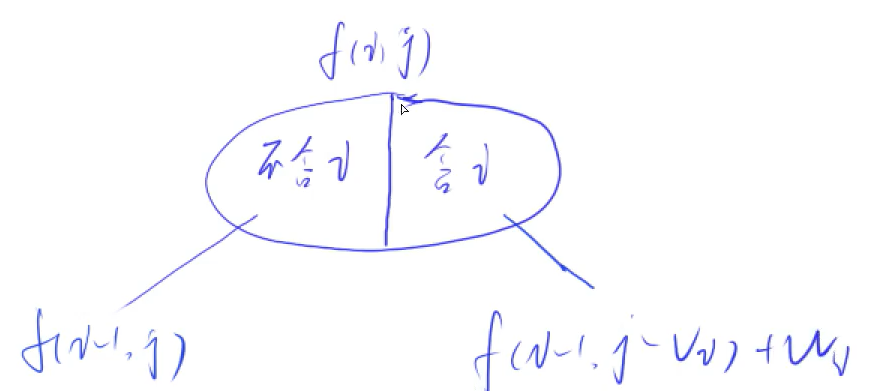 f(i,j)
不含i 含i
f(i-1,j) f(i-1,j-vi)+wi